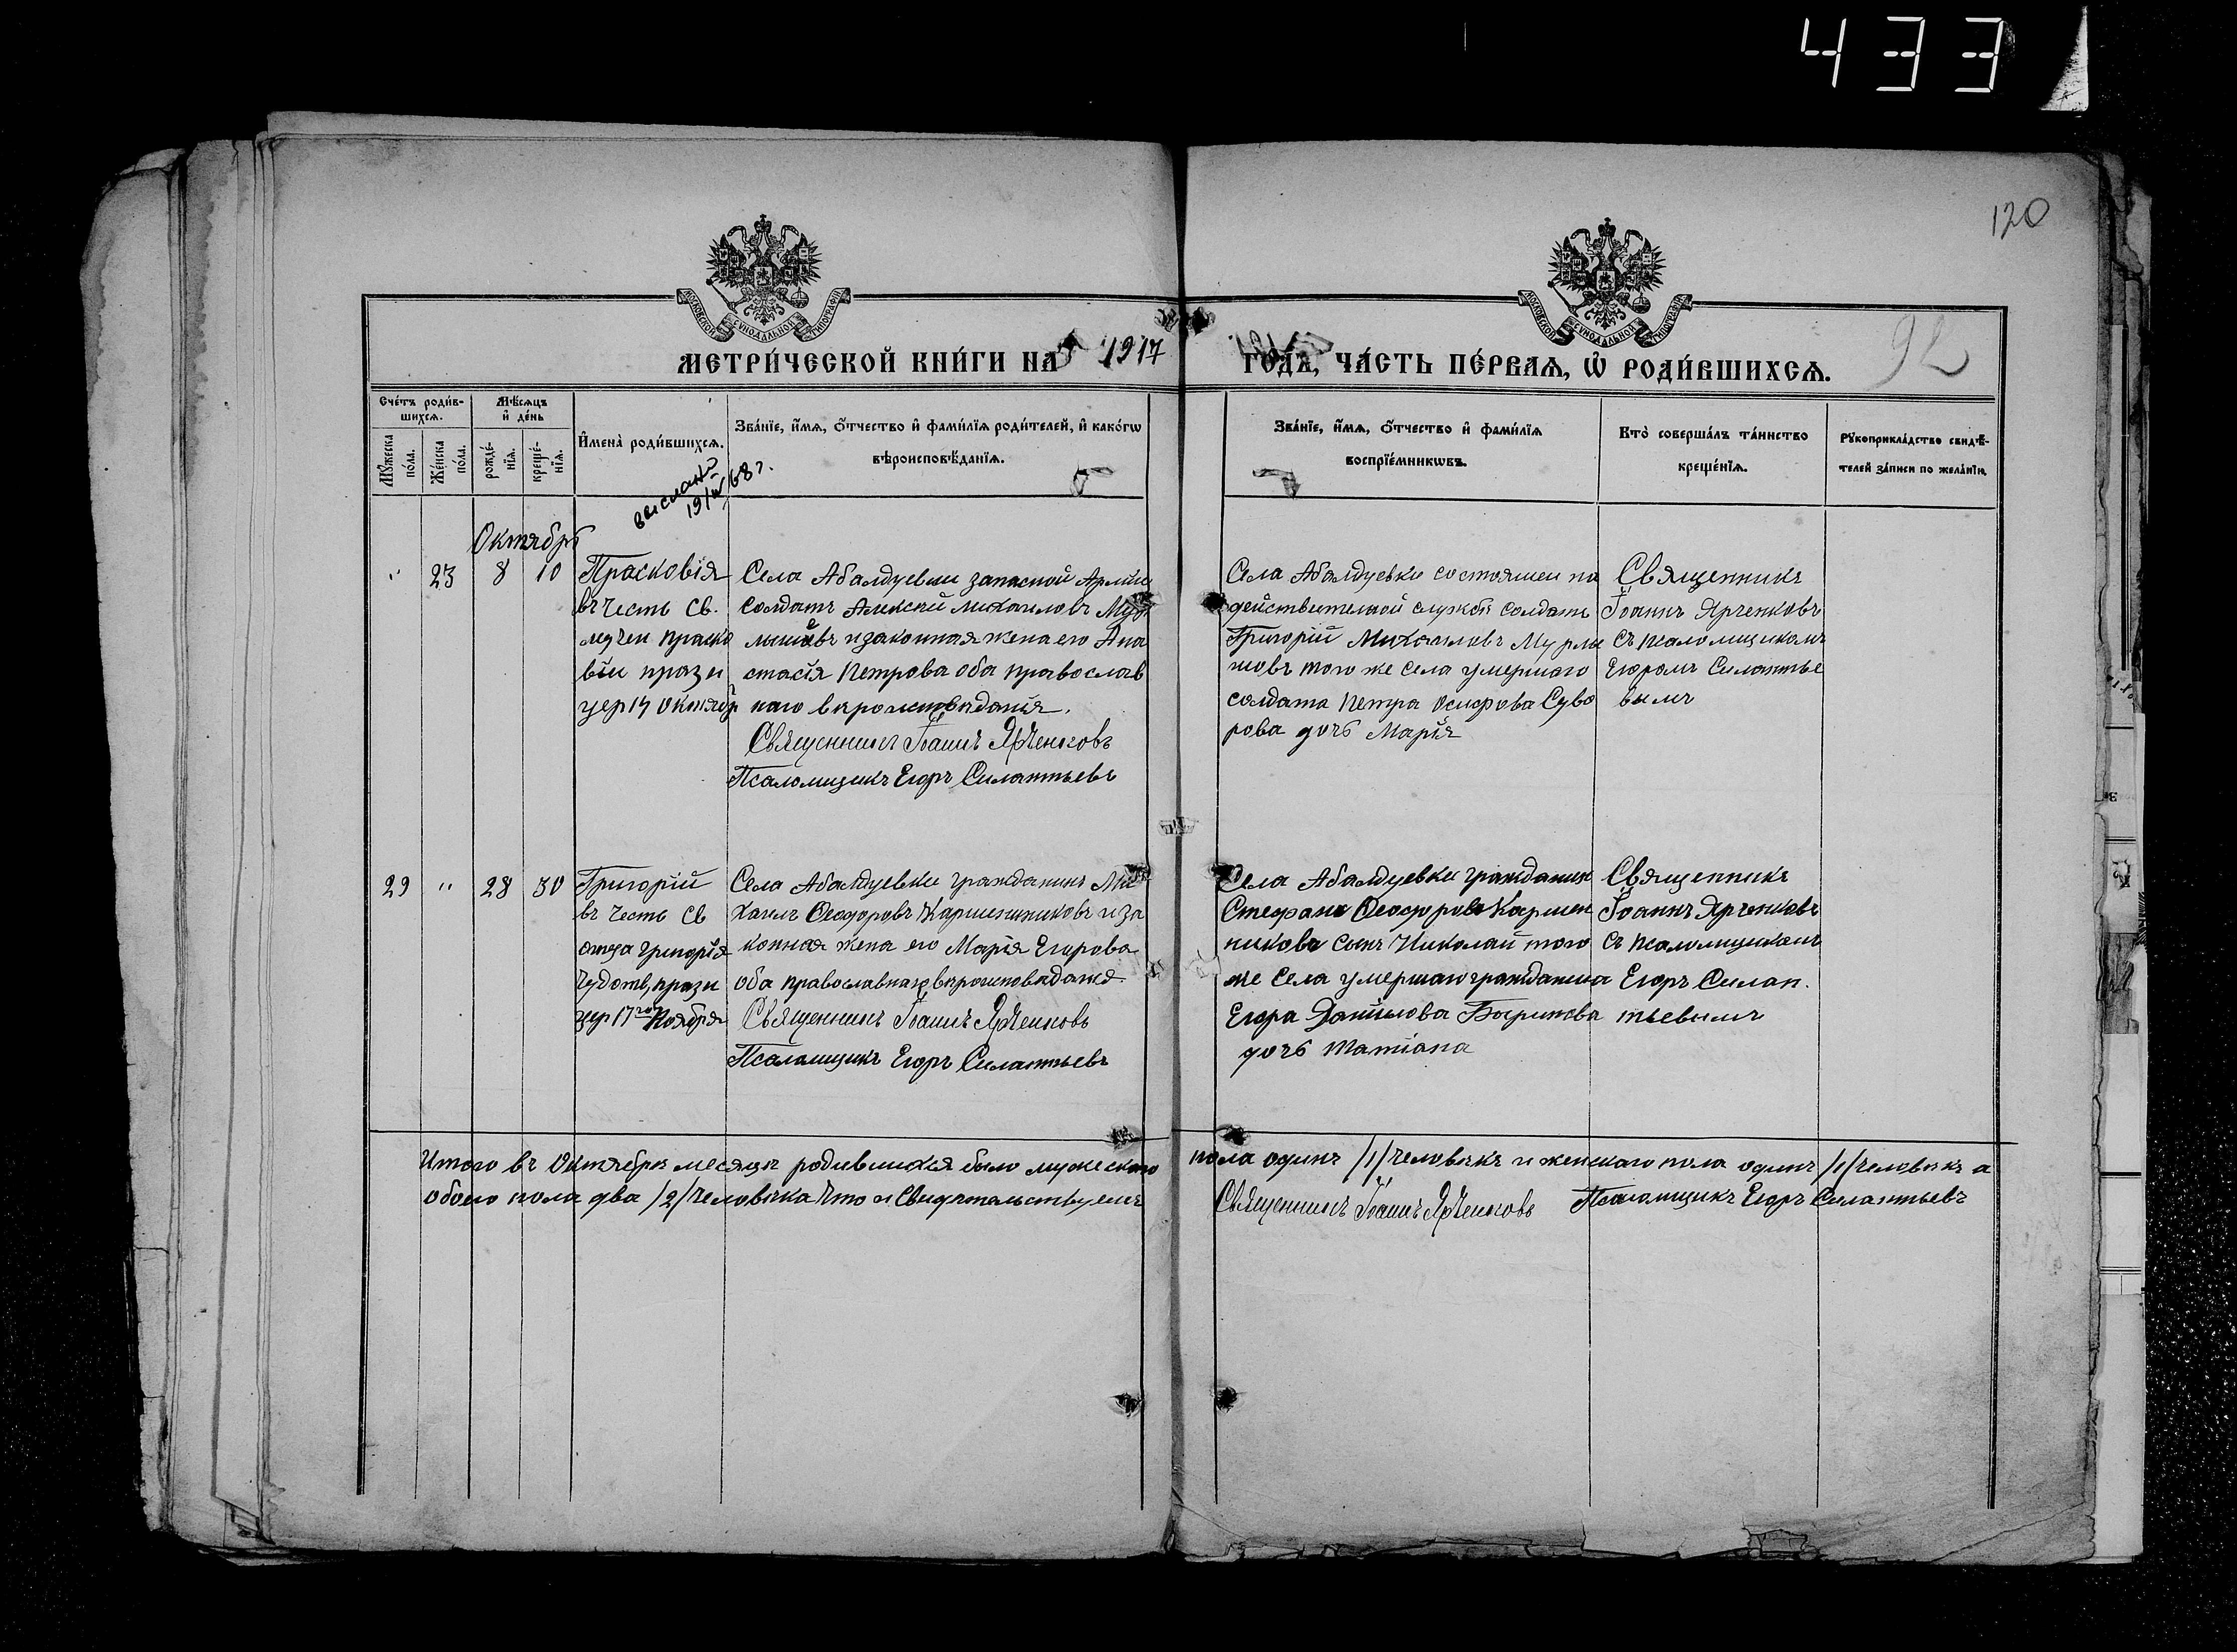 433
120
92
МОСКОВСКОЙ СѴНОДАЛЬНОЙ ТИПОГРАФІИ
МОСКОВСКОЙ СѴНОДАЛЬНОЙ ТИПОГРАФІИ
МЕТРИ́ЧЕСКОЙ КНИ́ГИ НА 1917
ГО́ДЪ, ЧА́СТЬ ПЕ́РВАѦ, Ѡ҆ РОДИ́ВШИХСѦ.
Сче́тъ роди́в-
шихсѧ.
Мѣ́сѧцъ
и҆ де́нь
Мꙋ́жеска
по́ла.
Же́нска
по́ла.
рожде́-
нїѧ.
креще́-
нїѧ.
И҆мена̀ роди́вшихсѧ.
Зва́нїе, и҆́мѧ, ѻ҆́тчество и҆ фами́лїѧ роди́телей, и҆ како́гѡ
вѣроисповѣ́данїѧ.
Зва́нїе, и҆́мѧ, ѻ҆́тчество и҆ фами́лїѧ
воспрїе́мникѡвъ.
Кто̀ соверша́лъ та́инство
креще́нїѧ.
Рꙋкоприкла́дство свидѣ́-
телей за́писи по жела́нїю.
высланы
19/IV 68 г.
Октябрь
" 23 8 10
Прасковія
въ честь св.
мучен праско
віи празн
уер 14 октяб
Села Абалдуевки запасной Арміи
солдатъ Алексѣй Михаиловъ Мур
лышовъ и законная жена его Ана
стасія Петрова оба православ
наго вѣроисповѣданія.
Священникъ Іоаннъ Ярченковъ
Псаломщикъ Егоръ Силантьевъ
Села Абалдуевки состоящей на
действительной службѣ солдатъ
Григорій Михаиловъ Мурлы
шовъ того же села умершаго
солдата Петра Осифова Суво
рова дочь Марія
Священникъ
Іоаннъ Ярченковъ
съ псаломщикомъ
Егоромъ Силантье
вымъ
29 " 28 30
Григорій
въ честь св
отца григорія
чудотв, празн
уер 17го Ноября
Села Абалдуевки гражданинъ Ми
хаилъ Феодоровъ Карманниковъ и за
конная жена его Марія Егорова
оба православнаго вѣроисповѣданія.
Священникъ Іоаннъ Ярченковъ
Псаломщикъ Егоръ Силантьевъ
Села Абалдуевки гражданинъ
Стефана Феодорова Кармен
никова сынъ Николай того
же села умершаго гражданина
Егора Данилова
дочь Татіана
Священникъ
Іоаннъ Ярченковъ
съ псаломщикомъ
Егоръ Силан.
тьевымъ
Итого въ Октябрѣ месяцѣ родившихся было мужескаго пола одинъ /1/ человѣкъ и женскаго пола одинъ /1/ человѣкъ а
обоего пола два /2/ человѣка что и Свидѣтельствуемъ Священникъ Іоаннъ Ярченковъ Псаломщикъ Егоръ Силантьевъ